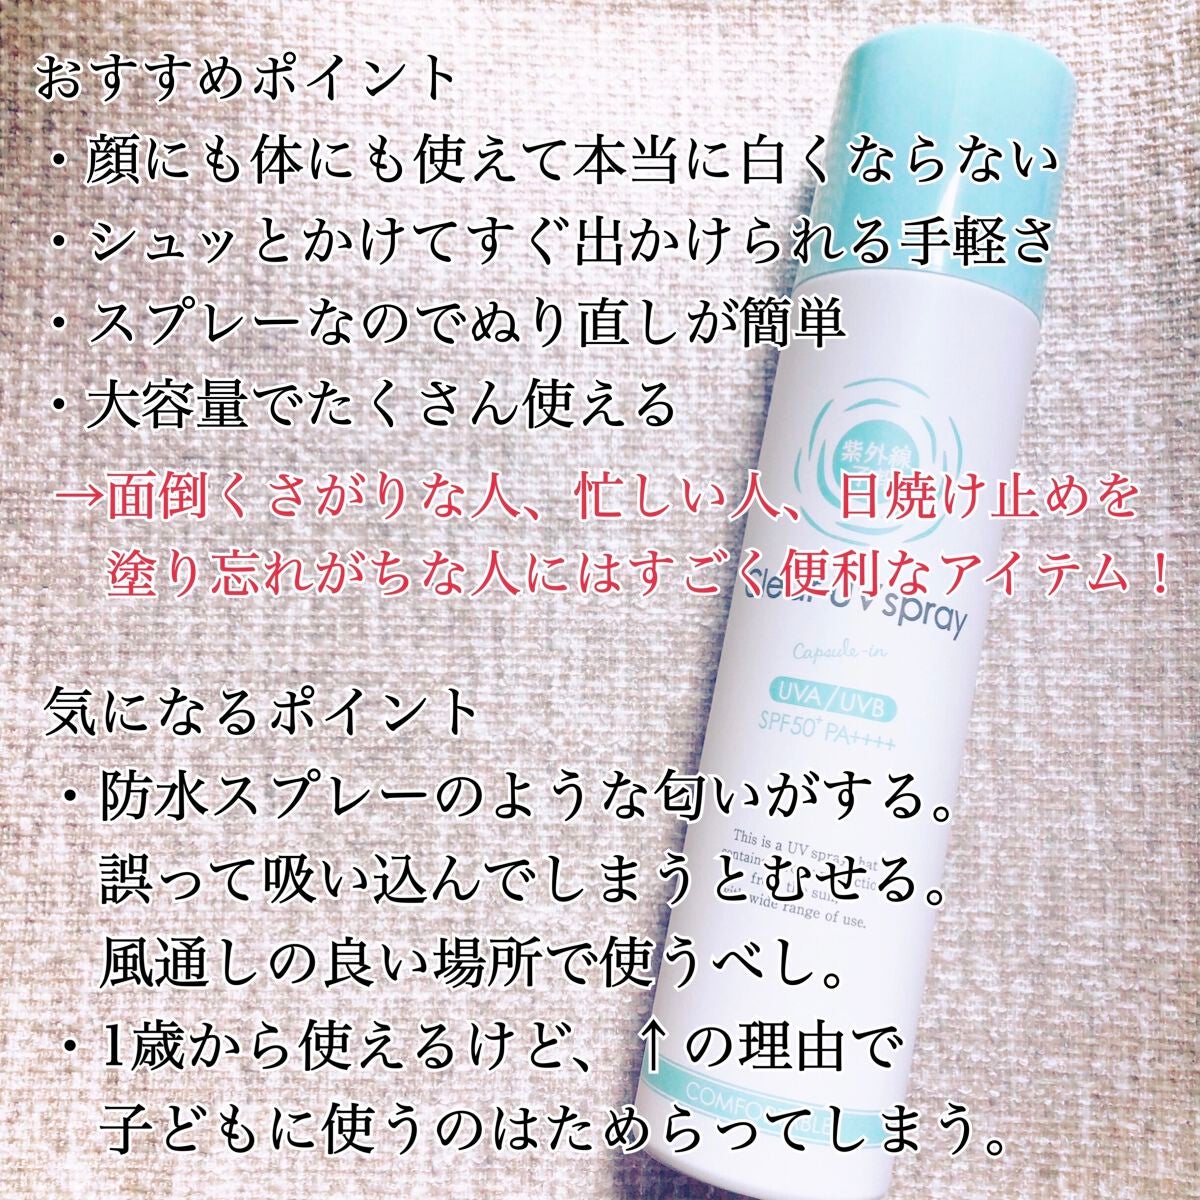 おすすめポイント
・顔にも体にも使えて本当に白くならない
・シュッとかけてすぐ出かけられる手軽さ
・スプレーなのでぬり直しが簡単
・大容量でたくさん使える
→面倒くさがりな人、忙しい人、日焼け止めを
塗り忘れがちな人にはすごく便利なアイテム！
紫外線
Clear UV spray
Capsule-in
UVA/UVB
SPF50+ PA++++
気になるポイント
・防水スプレーのような匂いがする。
誤って吸い込んでしまうとむせる。
風通しの良い場所で使うべし。
・1歳から使えるけど、↑の理由で
子どもに使うのはためらってしまう。
This is a UV spray
from the sun,
wide range of use.